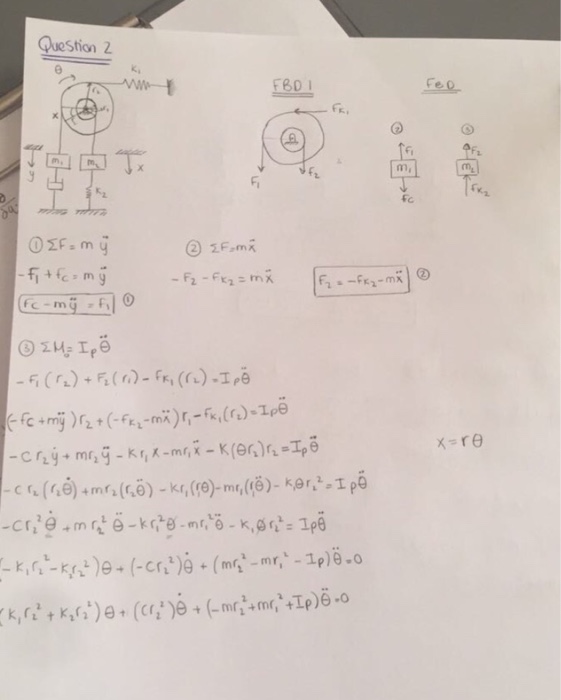 Question 2
θ K₁
r₂
x r₁
m₁ m₂
y x
K₂
FBD 1
FK₁
F₁ F₂
FBD
② ③
F₁ F₂
m₁ m₂
fc FK₂
① ΣF = m ÿ
② ΣF = mẍ
-F₁ + fc = m ÿ
-F₂ - FK₂ = mẍ
F₂ = -FK₂ - mẍ ②
fc - mÿ = F₁ ①
③ ΣM₀ = Ipθ̈
-F₁(r₂) + F₂(r₁) - FK₁(r₂) = Ipθ̈
(-fc + mÿ)r₂ + (-FK₂ - mẍ)r₁ - FK₁(r₂) = Ipθ̈
-c r₂ẏ + mr₂ÿ - Kr₁x - mr₁ẍ - K(θr₂)r₂ = Ipθ̈
x = rθ
-c r₂(r₂θ̇) + mr₂(r₂θ̈) - Kr₁(r₁θ) - mr₁(r₁θ̈) - K₁θr₂² = Ipθ̈
-cr₂²θ̇ + mr₂²θ̈ - Kr₁²θ - mr₁²θ̈ - K₁θr₂² = Ipθ̈
(-K₁r₂² - K₂r₁²)θ + (-cr₂²)θ̇ + (mr₂² - mr₁² - Ip)θ̈ = 0
(K₁r₂² + K₂r₁²)θ + (cr₂²)θ̇ + (-mr₂² + mr₁² + Ip)θ̈ = 0